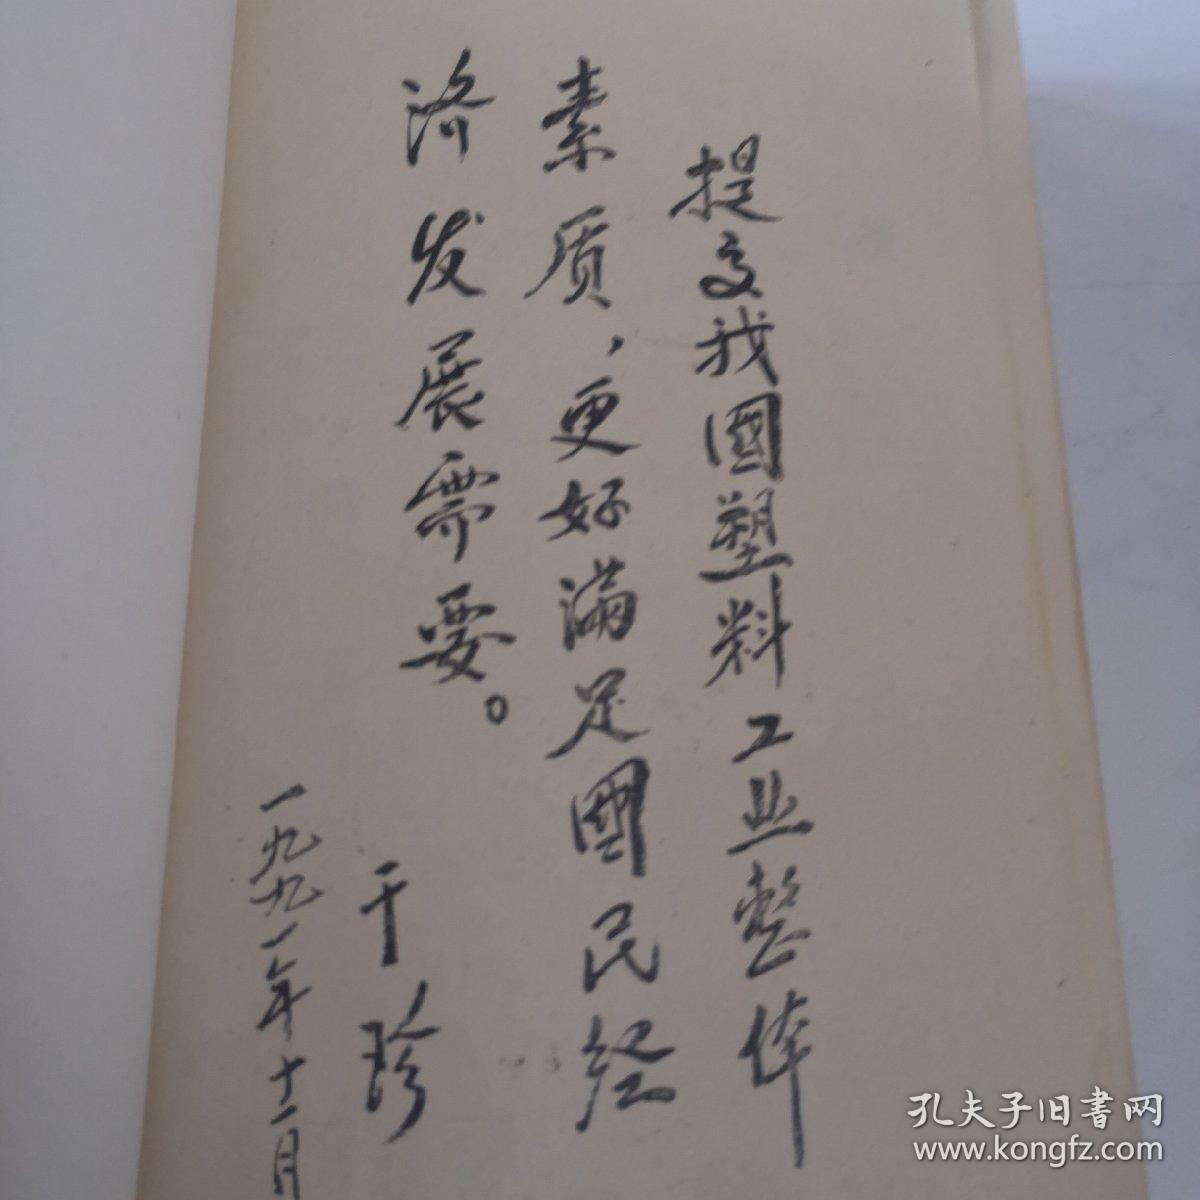 提高我國塑料工业整体
素质，更好满足國民经
济发展需要。
于珍
一九九一年十一月
孔夫子旧书网
www.kongfz.com